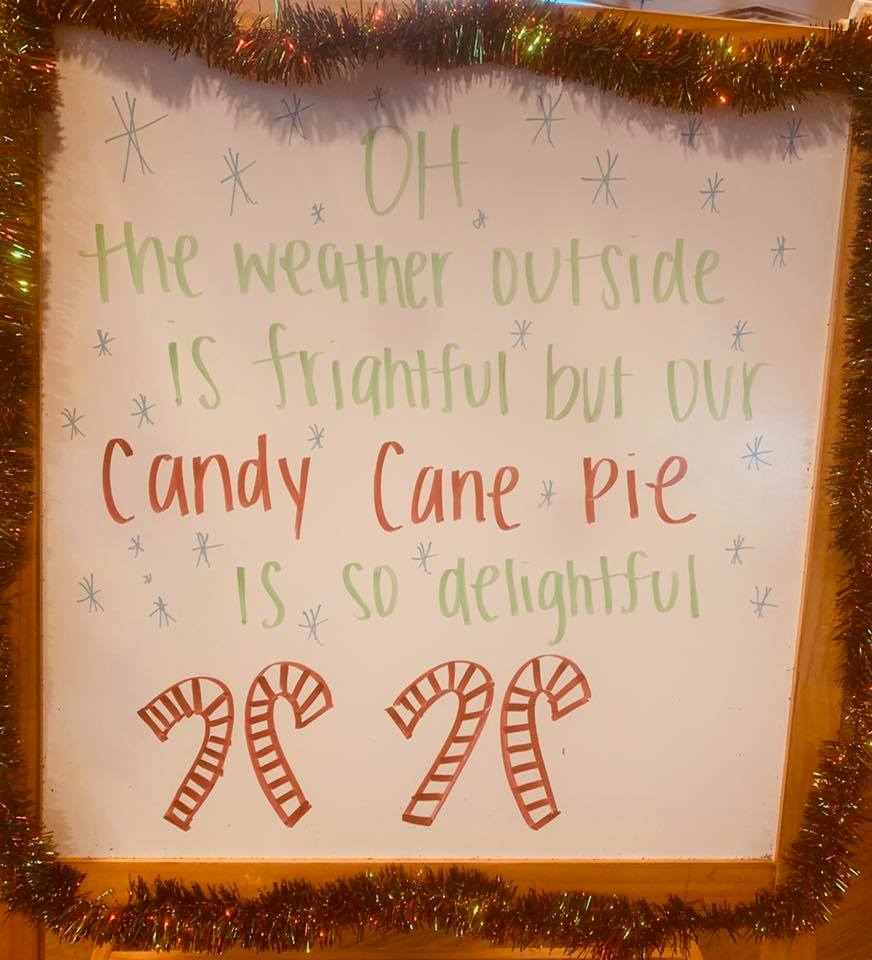 OH
the weather outside
is frightful but our
Candy Cane pie
is so delightful